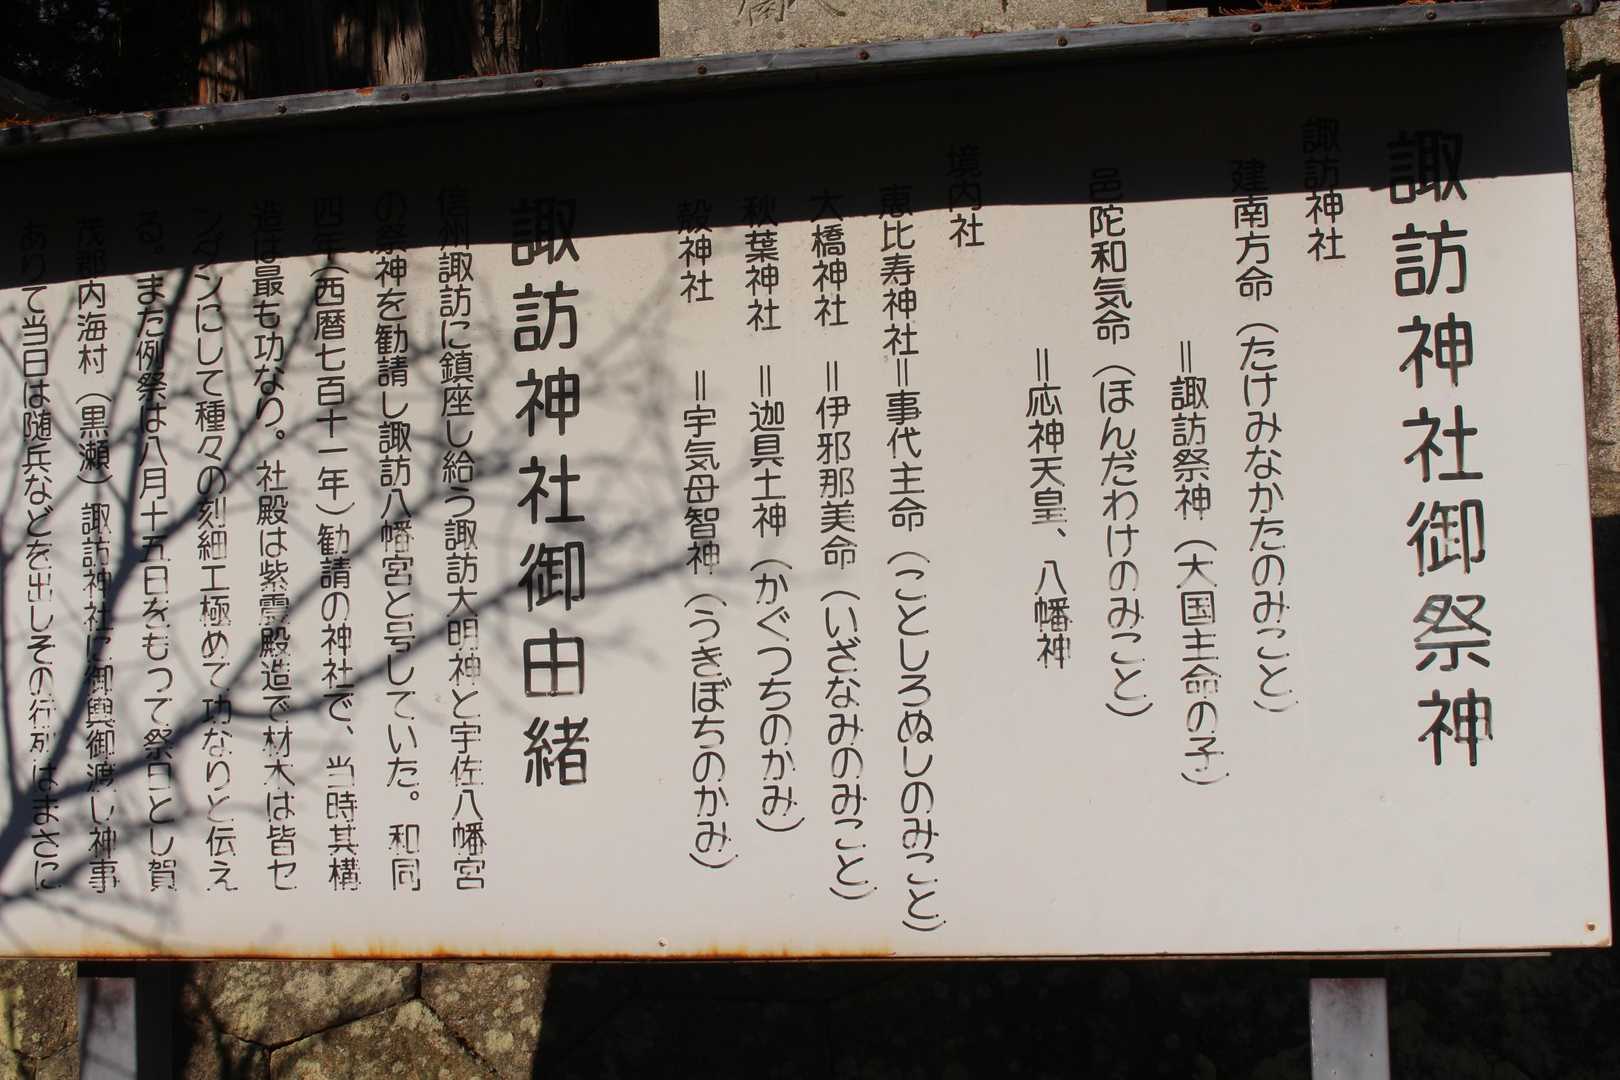 諏訪神社御祭神
諏訪神社
建南方命（たけみなかたのみこと）
＝諏訪祭神（大国主命の子）
邑陀和気命（ほんだわけのみこと）
＝応神天皇、八幡神
境内社
恵比寿神社＝事代主命（ことしろぬしのみこと）
大橋神社＝伊邪那美命（いざなみのみこと）
秋葉神社＝迦具土神（かぐつちのかみ）
穀神社＝宇気母智神（うきぼちのかみ）
諏訪神社御由緒
信州諏訪に鎮座し給う諏訪大明神と宇佐八幡宮
の祭神を勧請し諏訪八幡宮と号していた。和同
四年（西暦七百十一年）勧請の神社で、当時其構
造は最も功なり。社殿は紫震殿造で材木は皆セ
ンダンにして種々の刻細工極めて功なりと伝え
る。また例祭は八月十五日をもって祭日とし賀
茂郡内海村（黒瀬）諏訪神社に御輿御渡し神事
ありて当日は随兵などを出しその行列はまさに